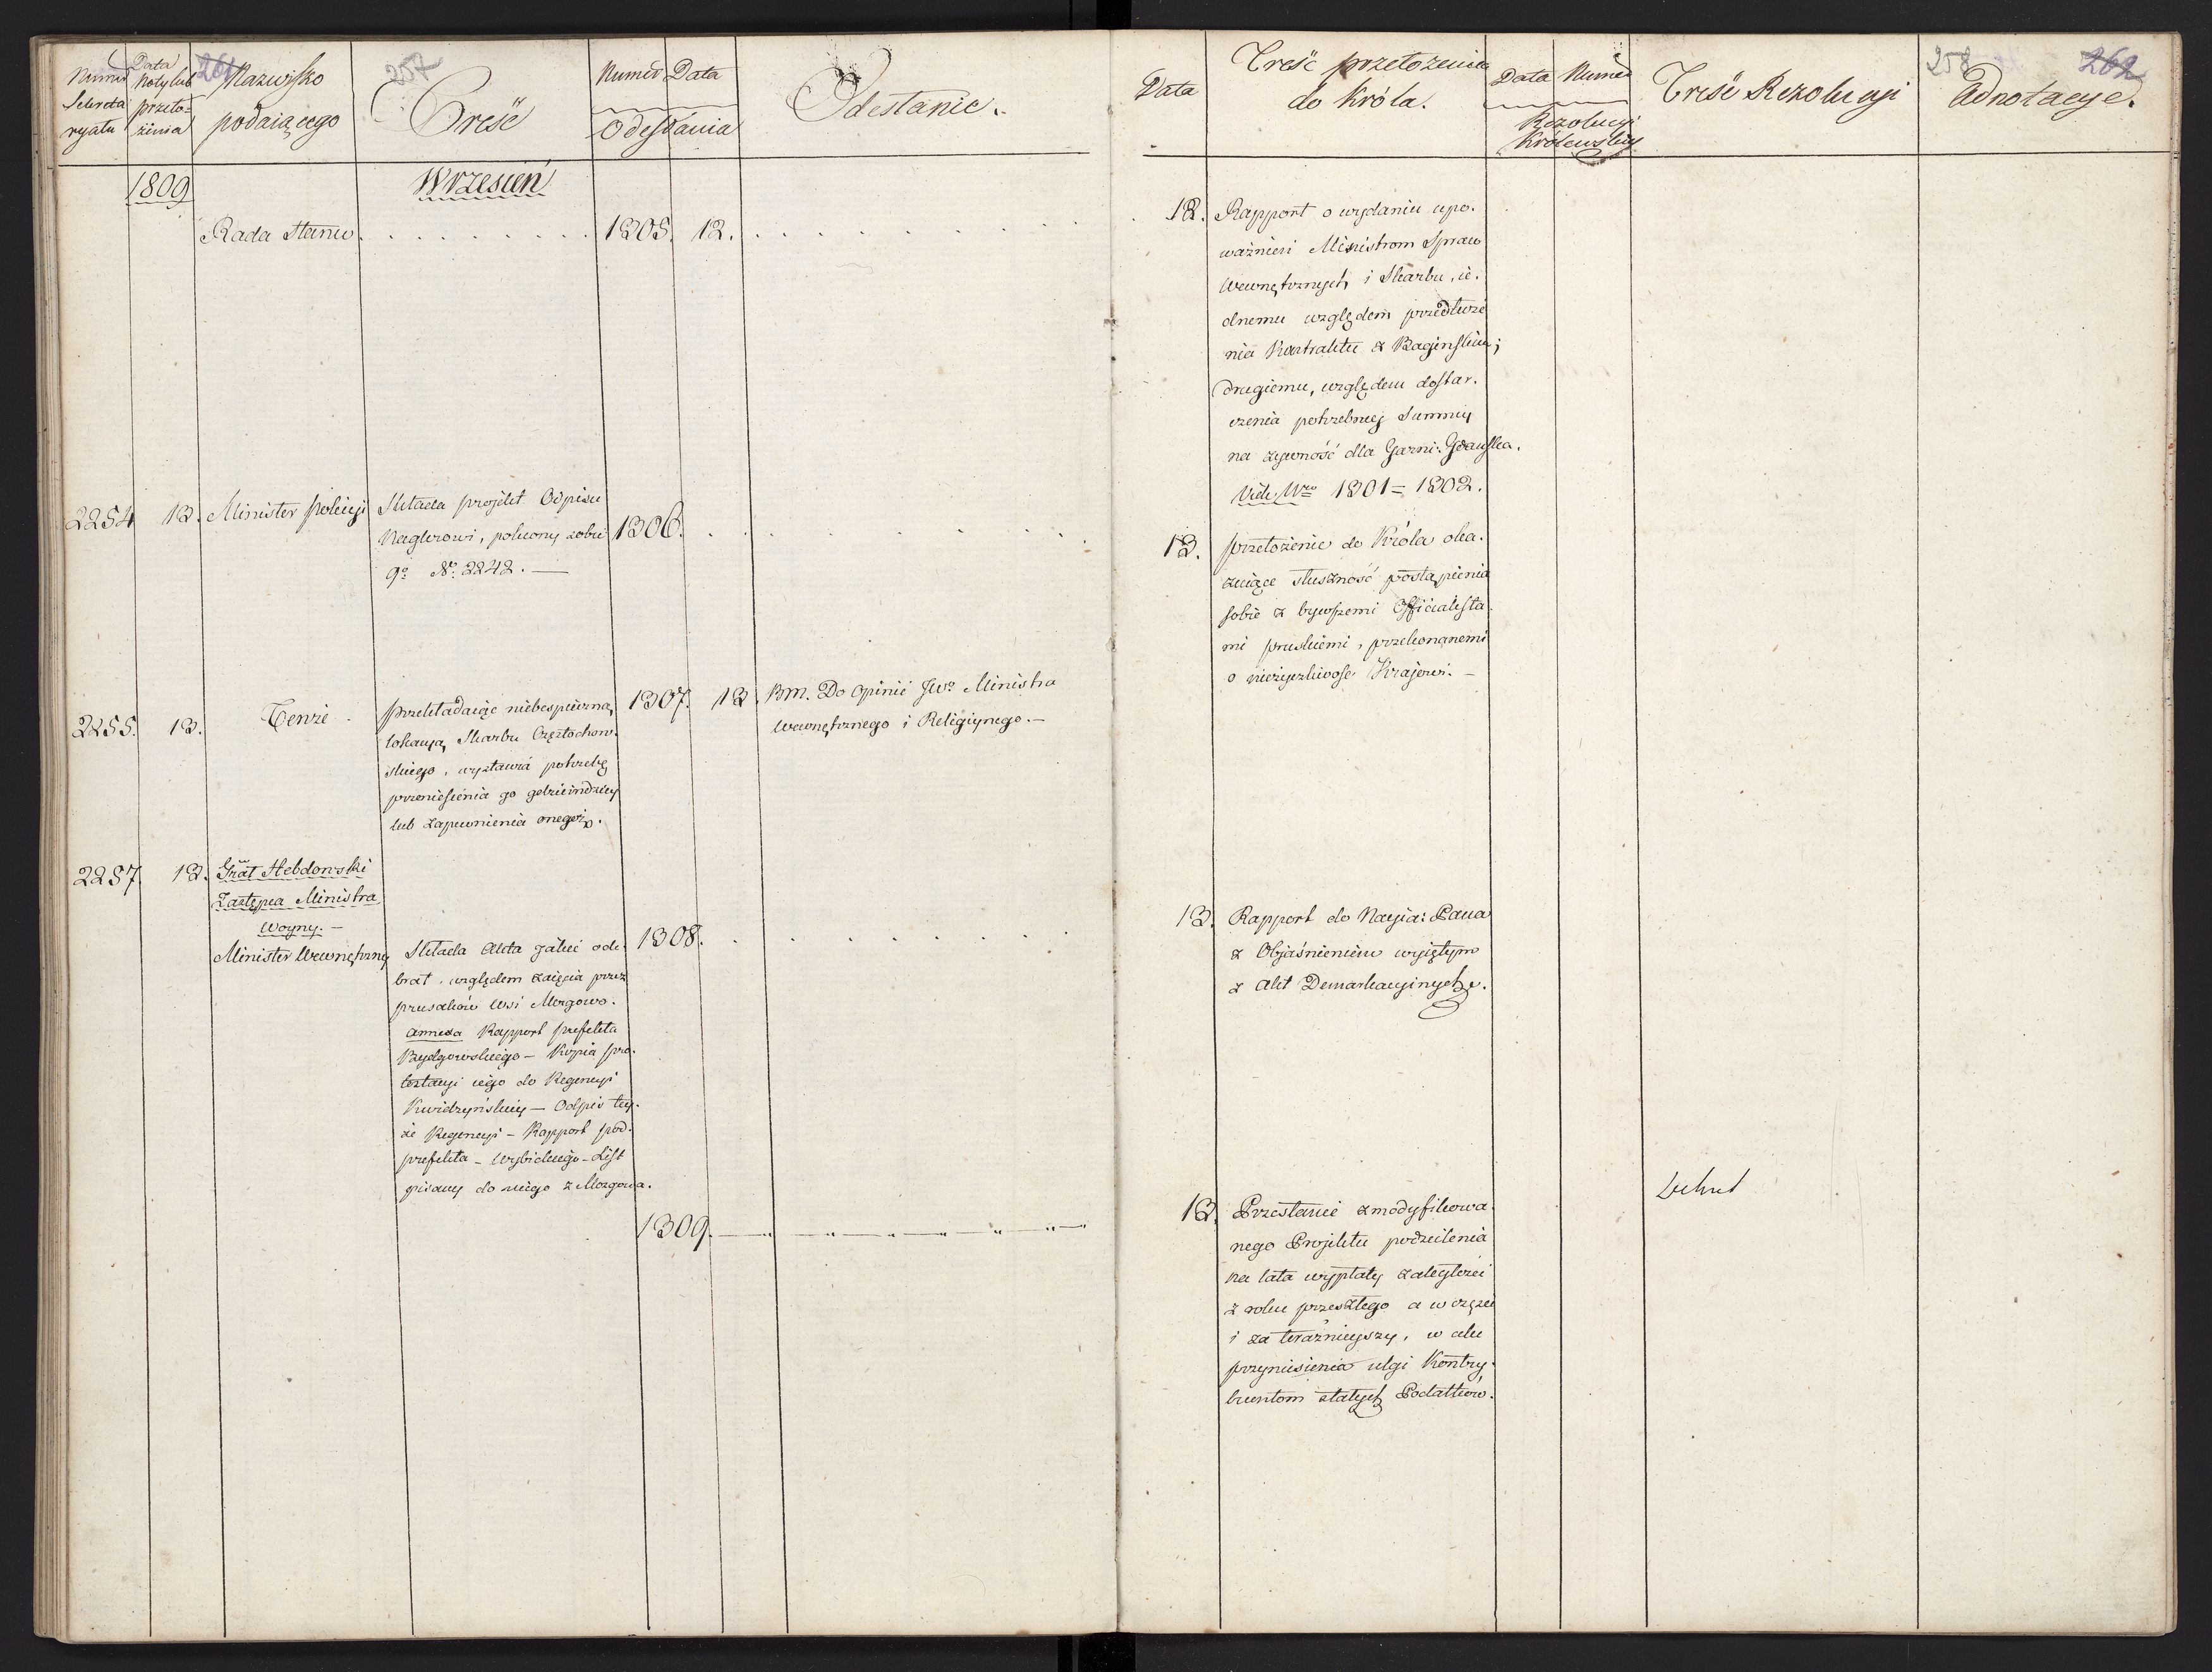 Numer Sekreta ryatu
Data Noty lub przeło= żenia
261
Nazwisko podaiącego
257
Treść
Numer Data
Odesłania
Odesłanie.
1809
Wrzesień
Rada Stanu . . . . . . . . . 1305. 12. . . . . . . . .
2254 13. Minister Policyi
Składa projekt Odpisu
Naglerowi, polecony sobie
go No. 2242. —
1306. . . . . . . . .
2255. 13. Tenże
Przekładaiąc niebespieczną
lokacyą Skarbu Częstochow.
skiego, wystawia potrzebę
przeniesienia go gdzieindziey
lub zapewnienia onegoż.
1307. 13. Bm. Do Opinii JWo Ministra
Wewnętrznego i Religiynego. —
2257. 13. Grał Hebdowski
Zastępca Ministra
Woyny. —
Minister Wewnętrzny
Składa Akta iakie ode.
brał, względem zaięcia przez
Prusaków Wsi Mozgowo.
Annexa Rapport Prefekta
Bydgowskiego — Kopia pro.
testacyi iego do Regencyi
Kwidzyńskiey — Odpis tey.
że Regencyi — Rapport pod.
prefekta — Wybickiego — List
pisany do niego z Mozgowa.
1308. . . . . . . . .
1309. — " — " — " — " — " —
Data
Treść przełożenia
do Króla.
Data Numer
Rezolucyi
Królewskiey
Treść Rezolucyi
258
262
Adnotacye.
12. Rapport o wydaniu upo.
ważnień Ministrom Spraw
Wewnętrznych i Skarbu, ie.
dnemu względem przedłuże
nia Kontraktu z Baginskim;
drugiemu, względem dostar.
czenia potrzebney Summy
na żywność dla Garni: Gdańska.
Vide Nro 1301 = 1302.
13. Przełożenie do Króla oka.
zuiące słuszność postąpienia
sobie z bywszemi Officialista.
mi pruskiemi, przekonanemi
o nieżyczliwość Krajowi. —
13. Rapport do Nayia: Pana
z Objaśnieniem wyiętym
z Akt Demarkacyinych.
13. Przesłanie zmodyfikowa.
nego Projektu podzielenia
na lata wypłaty zaległości
z roku przeszłego a w części
i za teraźnieyszy, w celu
przyniesienia ulgi Kontry.
buentom stałych Podatków.
Dekret